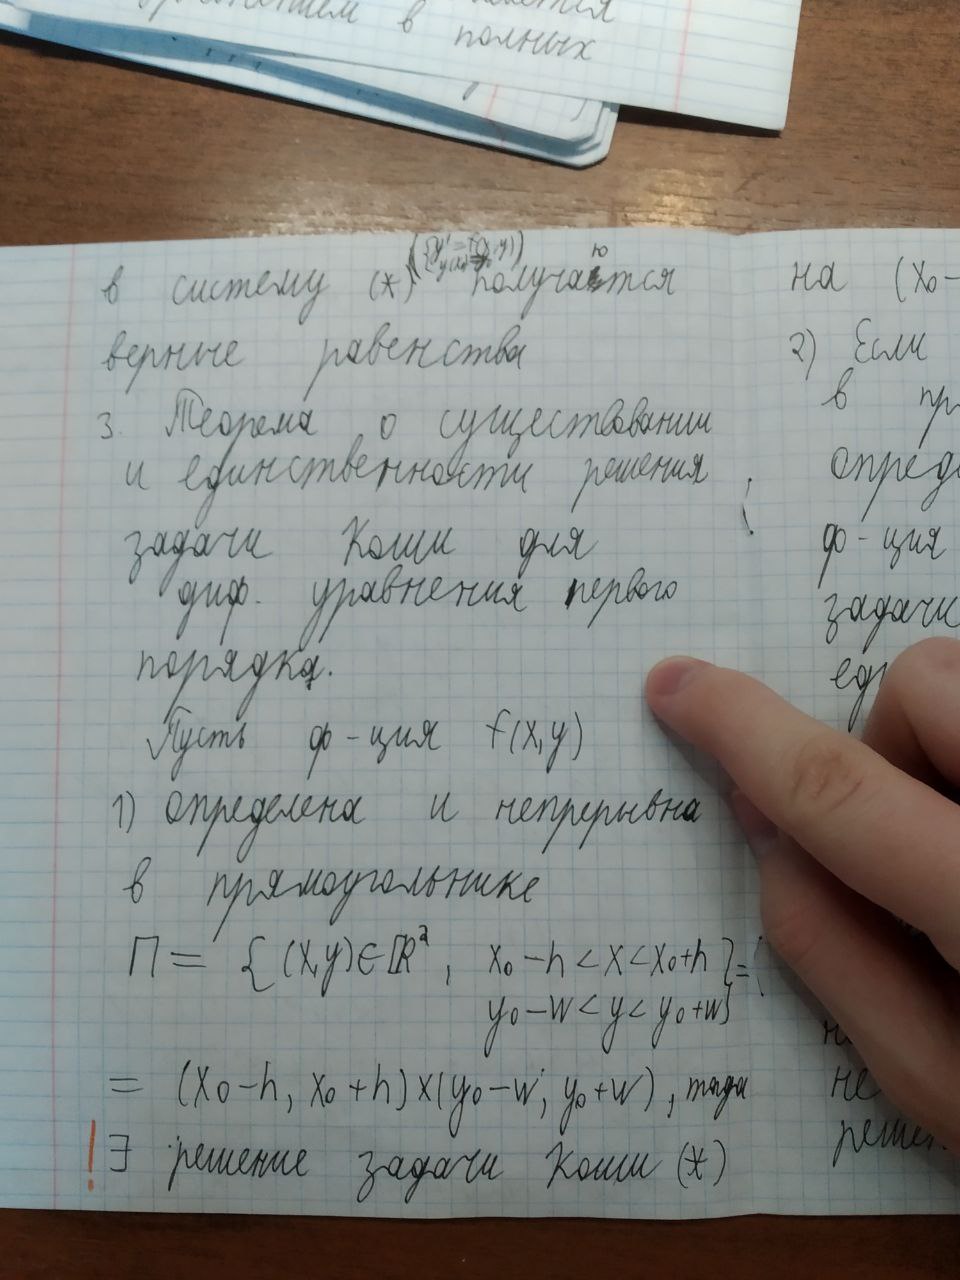 в полных
({y' = f(x,y)
в систему (*) получаются
верные равенства
3. Теорема о существовании
и единственности решения
задачи Коши для
диф. уравнения первого
порядка.
Пусть ф-ция f(x,y)
1) определена и непрерывна
в прямоугольнике
П = { (x,y) ∈ ℝ², x₀-h < x < x₀+h } =
y₀-w < y < y₀+w
= (x₀-h, x₀+h) x (y₀-w; y₀+w), тогда
! ∃ решение задачи Коши (*)
на (x₀-
2) Если
в пр
опреде
ф-ция
задачи
не
решен